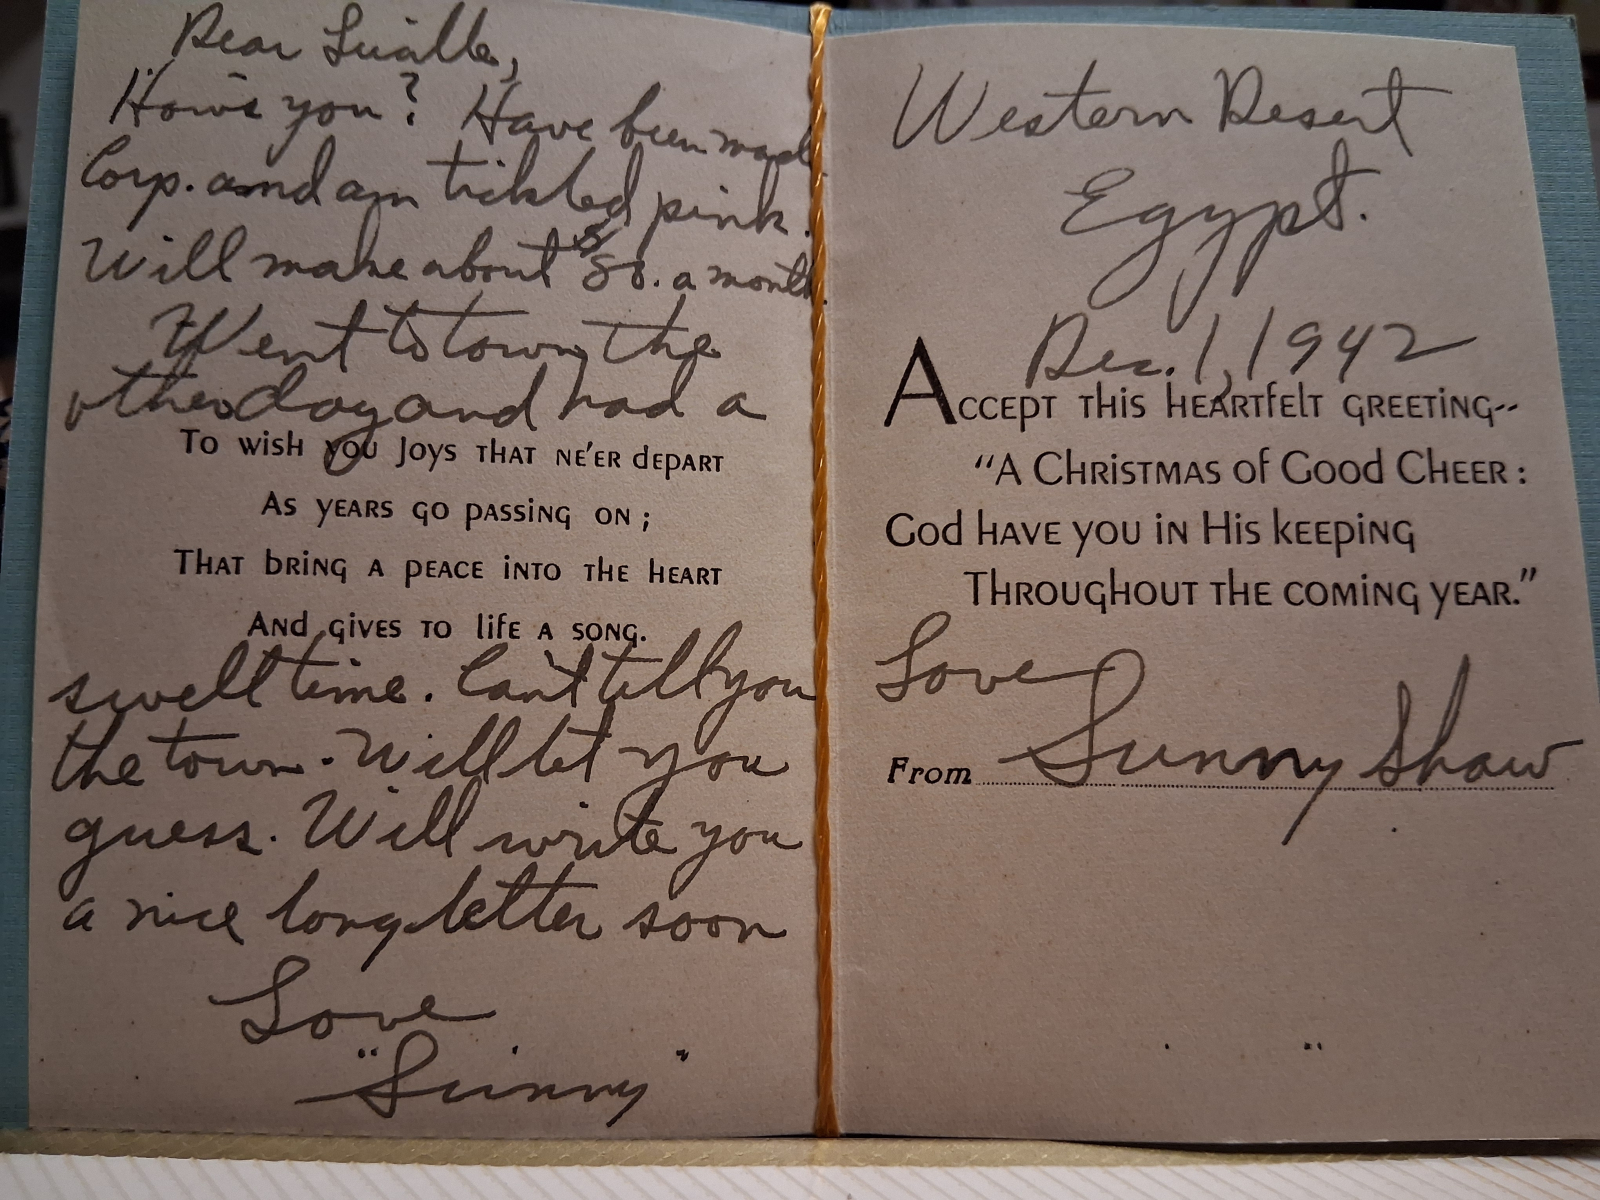 Dear Lucille,
How's you? Have been made
Corp. amd am tickled pink.
Will make about $80. a month.
Went to town the
other day and had a
To wish you joys that ne'er depart
As years go passing on;
That bring a peace into the heart
And gives to life a song.
swell time. Can't tell you
the town. Will let you
guess. Will write you
a nice long letter soon
Love
"Sunny"
Western Desert
Egypt.
Dec. 1, 1942
Accept this heartfelt greeting--
"A Christmas of Good Cheer:
God have you in His keeping
Throughout the coming year."
Love
From Sunny Shaw